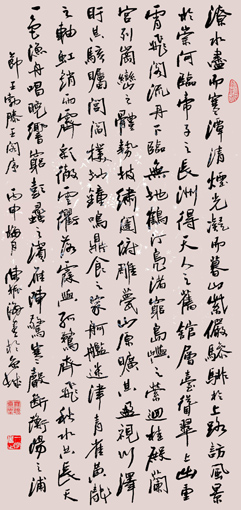 潦水盡而寒潭清煙光凝而暮山紫儼驂騑於上路訪風景
於崇阿臨帝子之長洲得天人之舊館層臺聳翠上出重
霄飛閣流丹下臨無地鶴汀鳧渚窮島嶼之縈迴桂殿蘭
宮列岡巒之體勢披繡闥俯雕甍山原曠其盈視川澤
盱其駭矚閭閻撲地鐘鳴鼎食之家舸艦迷津青雀黃龍
之軸虹銷雨霽彩徹雲衢落霞與孤鶩齊飛秋水共長天
一色漁舟唱晚響窮彭蠡之濱雁陣驚寒聲斷衡陽之浦
節王勃滕王閣序 丙申梅月